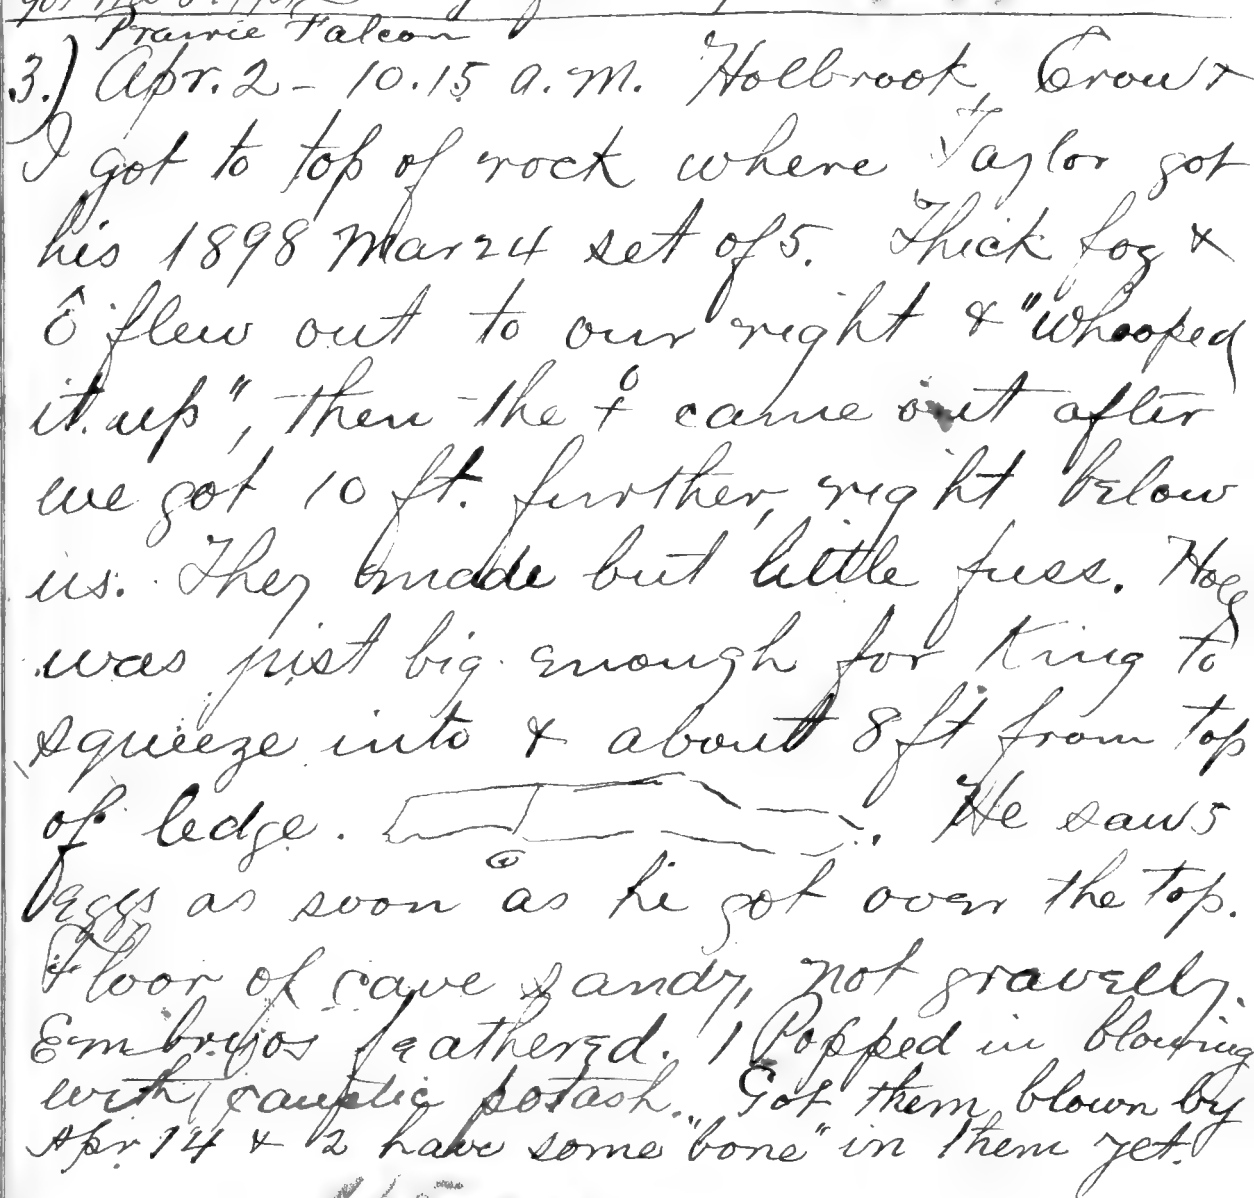 Prairie Falcon
3.) Apr. 2 - 10.15 a.m. Holbrook, Crow &
I got to top of rock where Taylor got
his 1898 Mar 24 set of 5. Thick fog &
♂ flew out to our right & "whooped
it up", then the ♀ came out after
we got 10 ft. further, right below
us. They made but little fuss. Hole
was just big enough for King to
squeeze into & about 8 ft from top
of ledge. . He saw 5
eggs as soon as he got over the top.
Floor of cave sandy, not gravelly.
Embryos feathered. 1 Popped in blowing
with caustic potash. Got them blown by
Apr 14 & 2 have some "bone" in them yet.